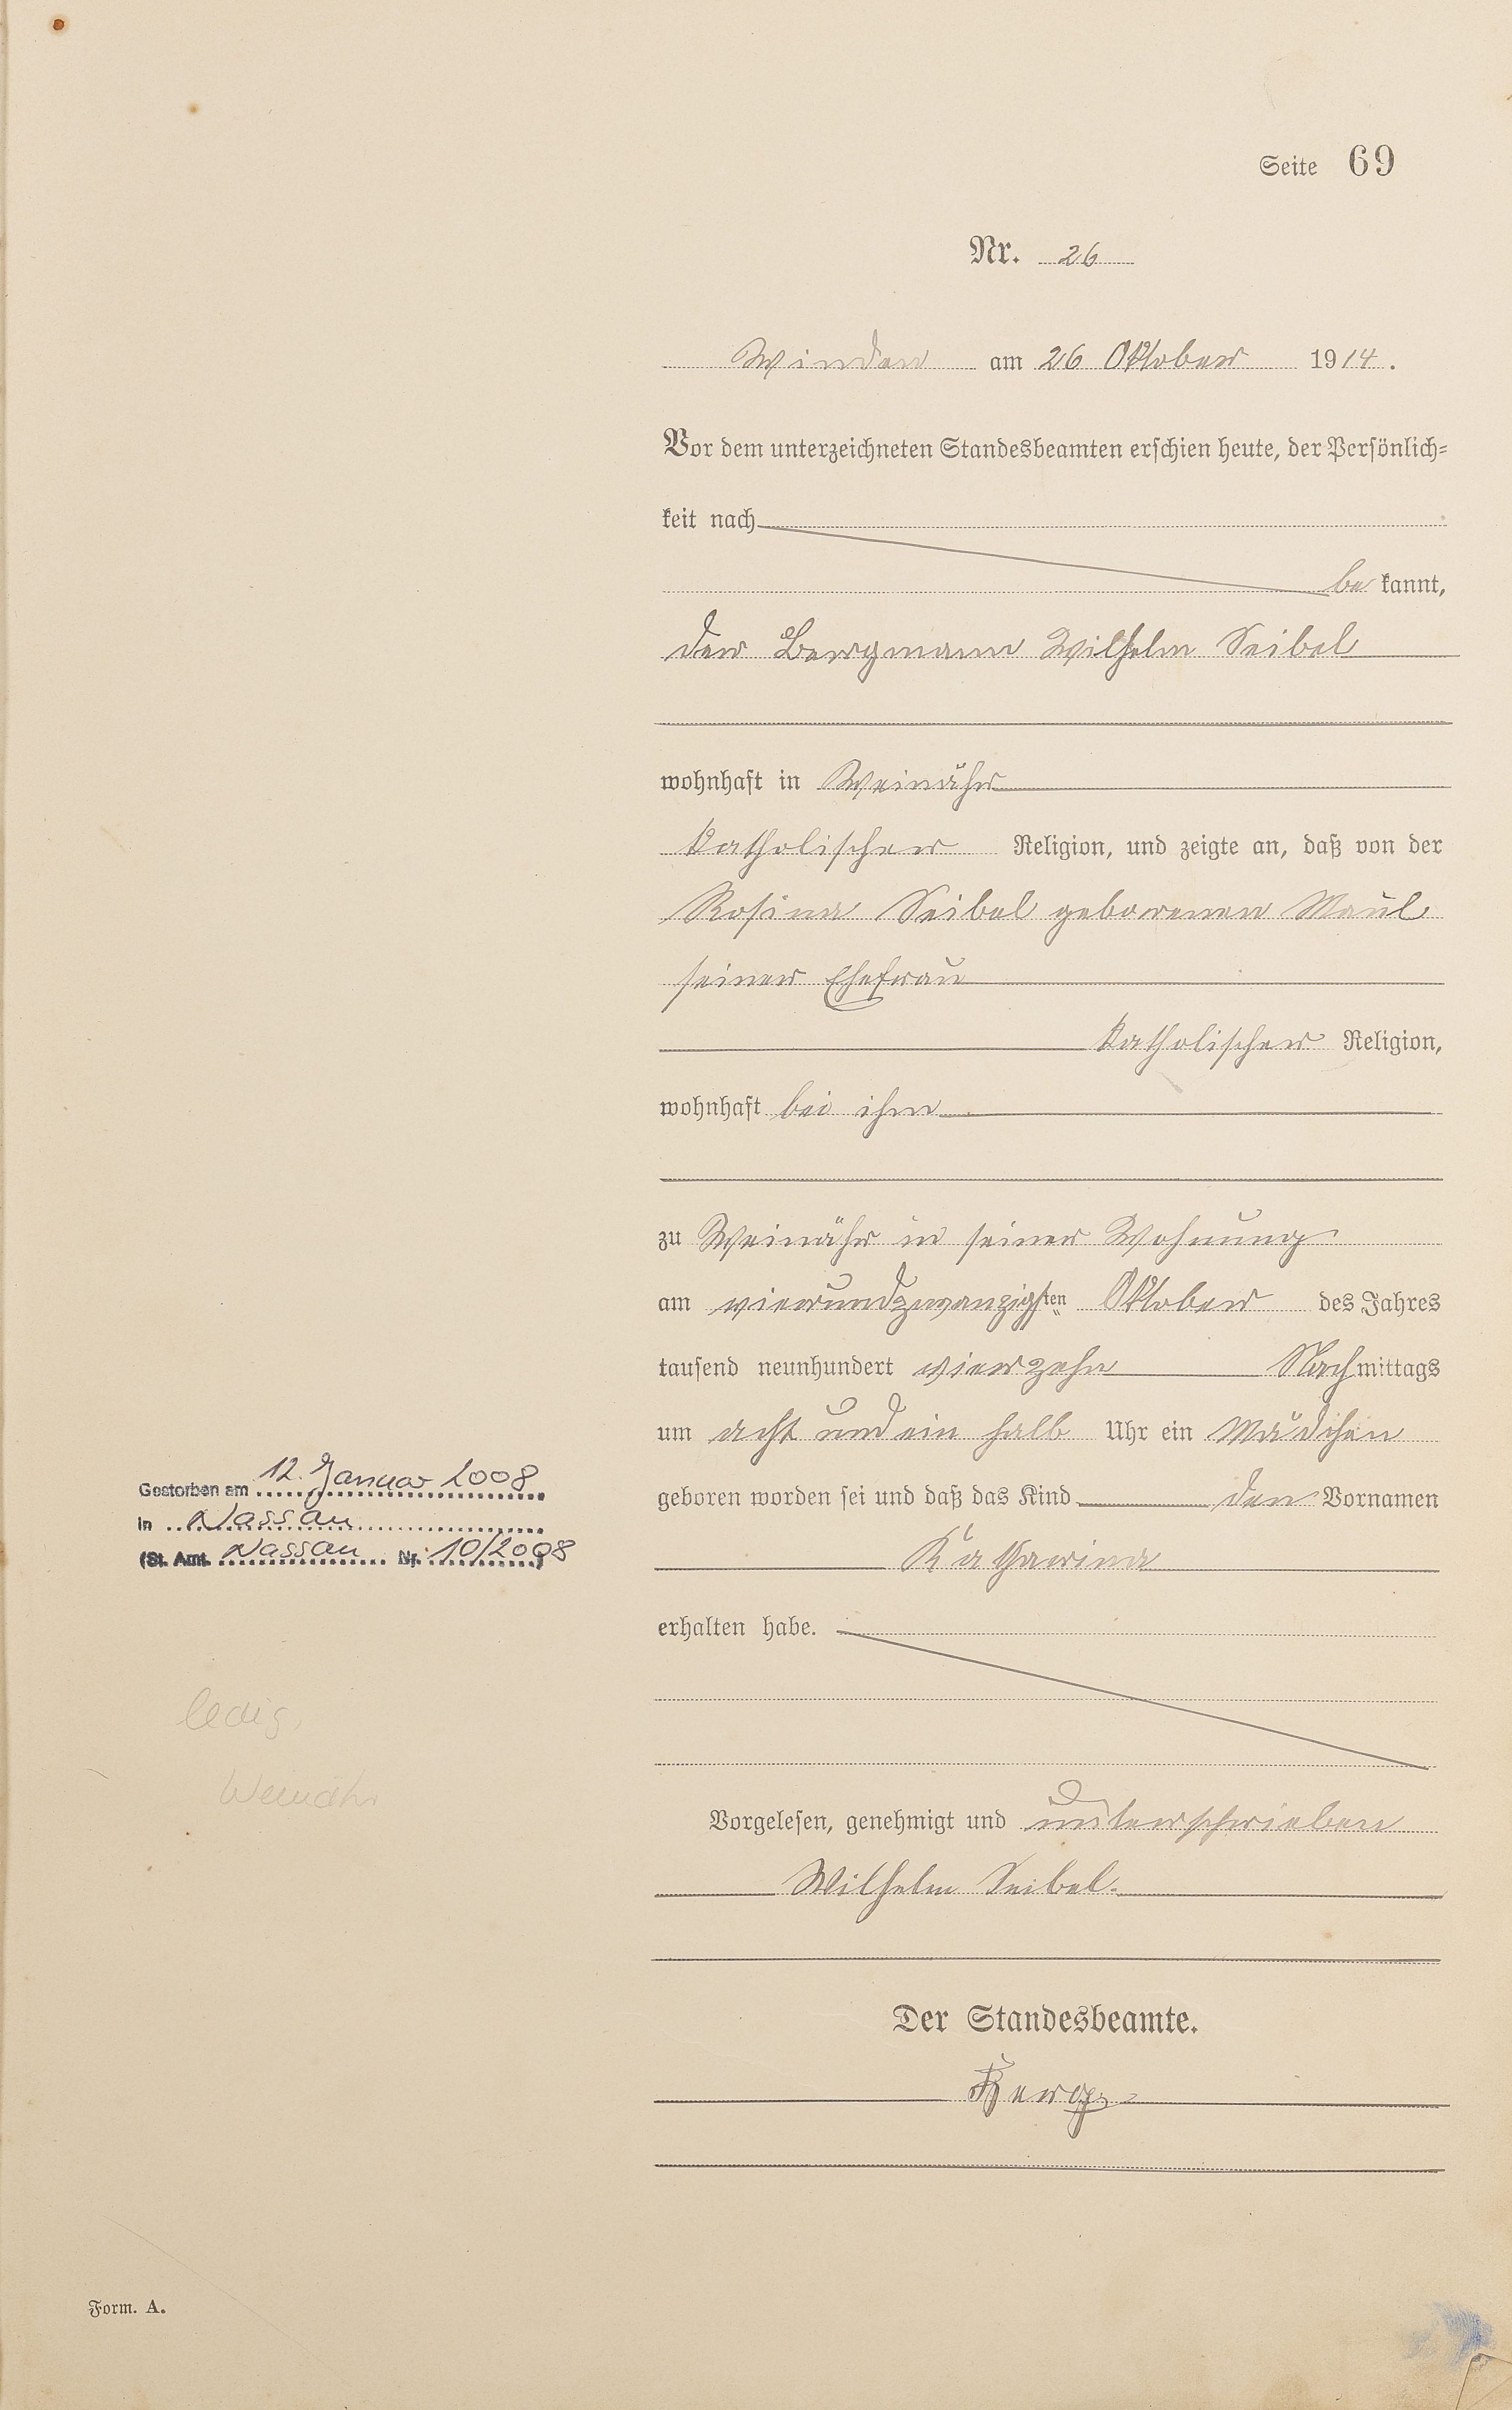 Seite 69
Nr. 26
Winden am 26 Oktober 1914.
Vor dem unterzeichneten Standesbeamten erschien heute, der Persönlich=
keit nach
be kannt,
der Bergmann Wilhelm Seibel
wohnhaft in Weinähr
katholischer Religion, und zeigte an, daß von der
Rosina Seibel geborenen Maul
seiner Ehefrau
katholischer Religion,
wohnhaft bei ihm
zu Weinähr in seiner Wohnung
am vierundzwanzigsten Oktober des Jahres
tausend neunhundert vierzehn Nachmittags
um acht und ein halb Uhr ein Mädchen
geboren worden sei und daß das Kind den Vornamen
Katharina
erhalten habe.
Vorgelesen, genehmigt und unterschrieben
Wilhelm Seibel.
Der Standesbeamte.
Gestorben am 12. Januar 2008
in Nassau
(St. Amt. Nassau Nr. 10/2008)
ledig,
Weinähr
Form. A.